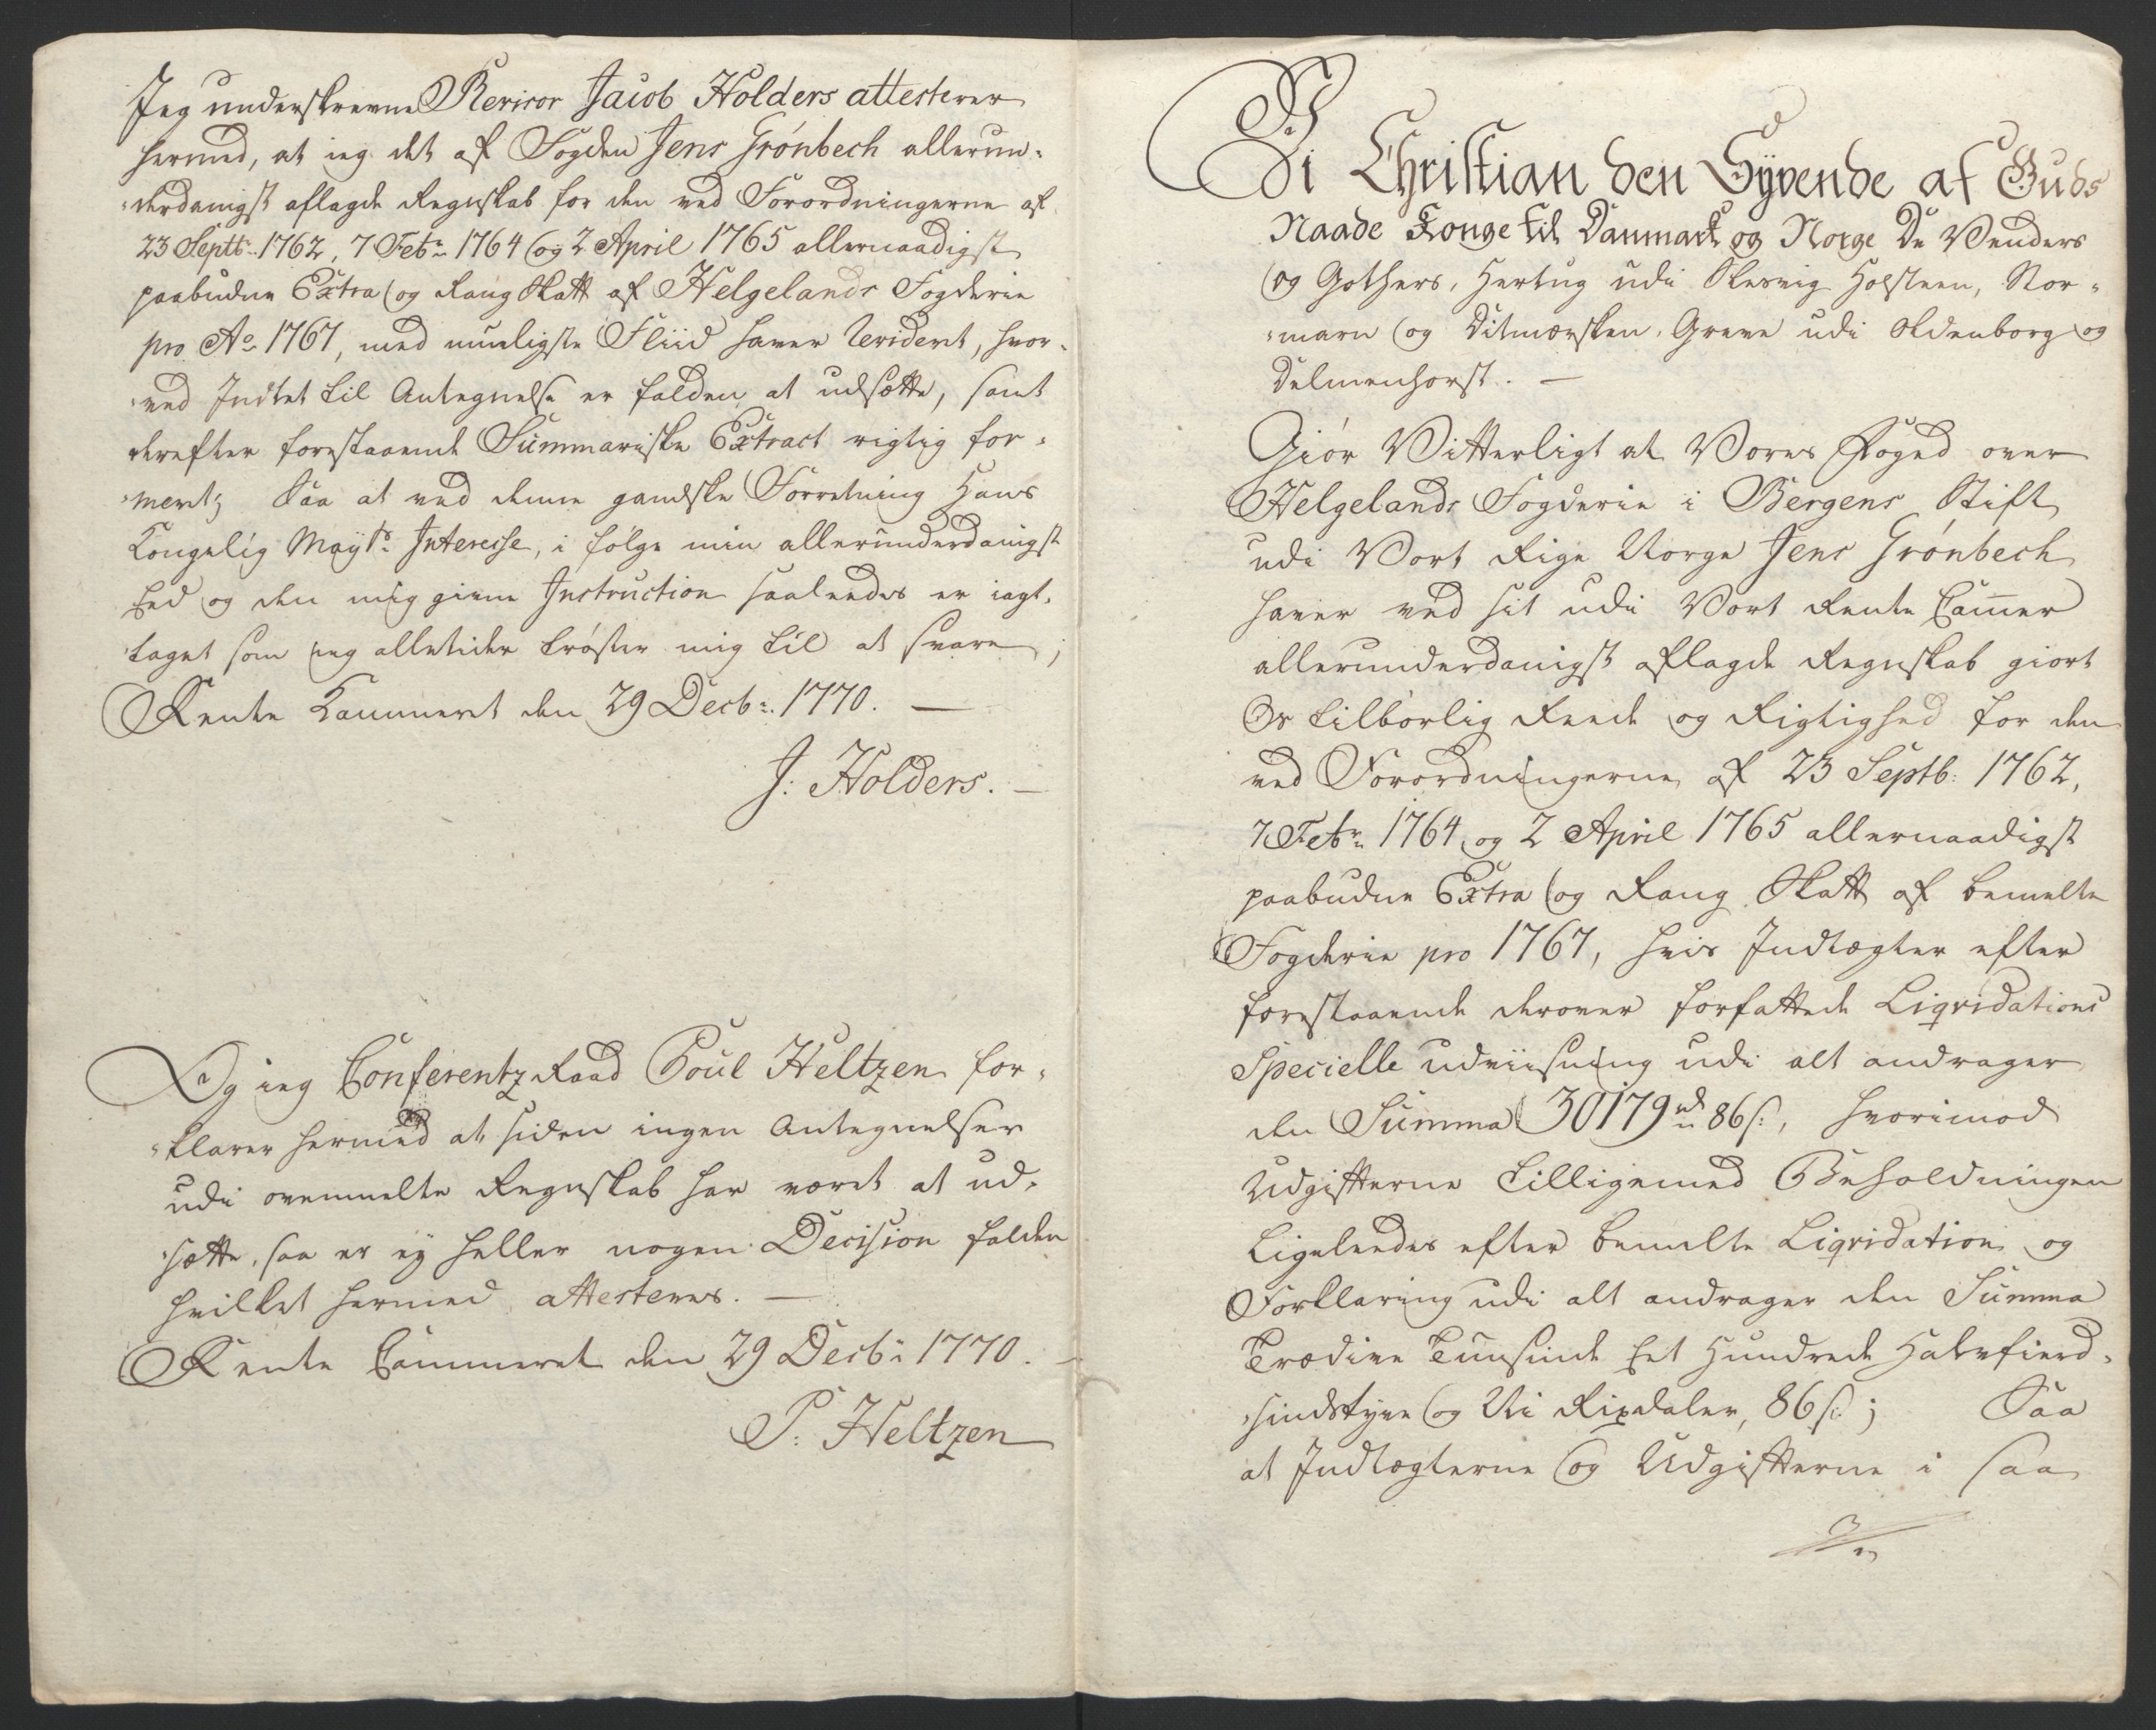 Jeg underskrevne Revisor Jacob Holders attesterer
hermed, at ieg det af Fogden Jens Grønbech allerun-
derdanigst aflagde Regnskab for den ved Forordningerne af
23 Septb: 1762, 7 Febr: 1764 og 2 April 1765 allernaadigst
paabudne Extra og Rang Skatt af Helgelands Fogderie
pro Ao 1767, med mueligste Fliid haver Revideret, hvor-
ved Intet til Antegnelse er falden at udsætte, samt
derefter forestaaende Summariske Extract rigtig for-
meret; Saa at ved denne gandske Forretning Hans
Kongelig Mayts: Interesse, i følge min allerunderdanigst
Eed og den mig givne Instruction saaleedes er iagt-
taget som ieg alletider trøster mig til at svare;
Rente Kammeret den 29 Decbr: 1770. —
J: Holders. —
Og ieg Conferentz Raad Poul Heltzen for-
klarer hermed at siden ingen Antegnelser
udi ovenmelte Regnskab har været at ud-
sætte, saa er ey heller nogen Decision falden
hvilket hermed attesteres. —
Rente Cammeret den 29 Decbr: 1770. —
P: Heltzen
Vi Christian den Syvende af Guds
Naade Konge til Danmark og Norge De Venders
og Gothers, Hertug udi Slesvig Holsteen, Stor-
marn og Ditmarsken, Greve udi Oldenborg og
Delmenhorst. —
Giør Vitterligt at Vores Foged over
Helgelands Fogderie i Bergens Stift
udi Vort Rige Norge Jens Grønbech
haver ved sit udi Vort Rente Cammer
allerunderdanigst aflagde Regnskab giort
Os tilbørlig Reede og Rigtighed for den
ved Forordningerne af 23 Septb: 1762,
7 Febr: 1764, og 2 April 1765 allernaadigst
paabudne Extra og Rang Skatt af bemelte
Fogderie pro 1767, hvis Indtægter efter
forestaaende derover forfattede Liqvidations
Specielle udviisning udi alt andrager
den Summa 30179 rd 86 s:, hvorimod
Udgifterne tilligemed Beholdningen
Ligeleedes efter bemelte Liqvidation og
Forklaring udi alt andrager den Summa
Tredive Tuusinde Eet Hundrede Halvfierd-
sindstyve og Ni Rixdaler, 86 s; Saa
at Indtægterne og Udgifterne i saa